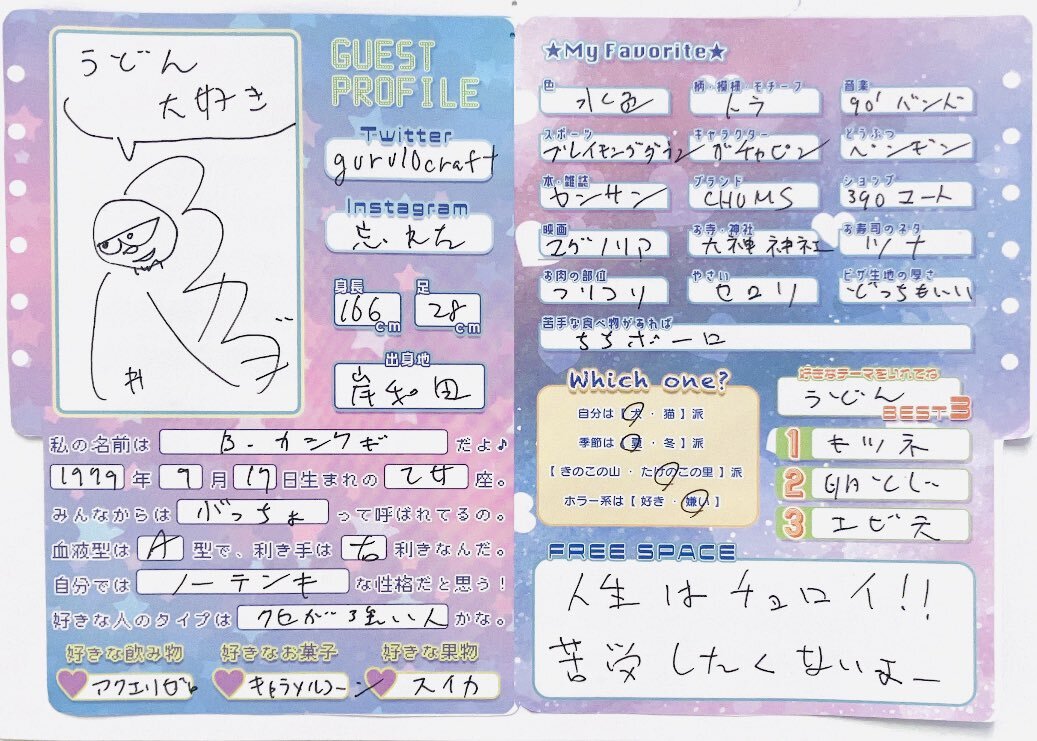 うどん
大好き
GUEST
PROFILE
Twitter
guru10craft
Instagram
忘れた
身長
足
166 cm
28 cm
出身地
岸和田
私の名前は B・カシワギ だよ♪
1979 年 9 月 17 日生まれの 乙女 座。
みんなからは ぶっちょ って呼ばれてるの。
血液型は A 型で、利き手は 右 利きなんだ。
自分では ノーテンキ な性格だと思う!
好きな人のタイプは クセが強い人 かな。
好きな飲み物
好きなお菓子
好きな果物
キャラメルコーン
スイカ
★My Favorite★
色
柄・模様・モチーフ
音楽
水色
トラ
90' バンド
スポーツ
キャラクター
どうぶつ
ブレイキングダウン
ガチャピン
ペンギン
本・雑誌
ブランド
ショップ
CHUMS
390 マート
映画
お寺・神社
お寿司のネタ
マグノリア
犬神神社
ツナ
お肉の部位
やさい
ピザ生地の厚さ
コリコリ
セロリ
どっちもいい
苦手な食べ物があれば
ちちボーロ
Which one?
自分は【 犬 ・ 猫 】派
季節は【 夏 ・ 冬 】派
【 きのこの山 ・ たけのこの里 】派
ホラー系は【 好き ・ 嫌い 】
好きなテーマを入れてね
うどん
BEST3
1 キツネ
2
3 エビ天
FREE SPACE
人生はチョロイ!!
苦労したくないよー